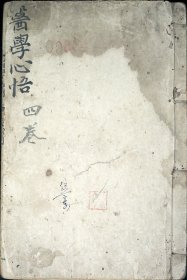 醫學心悟
四卷